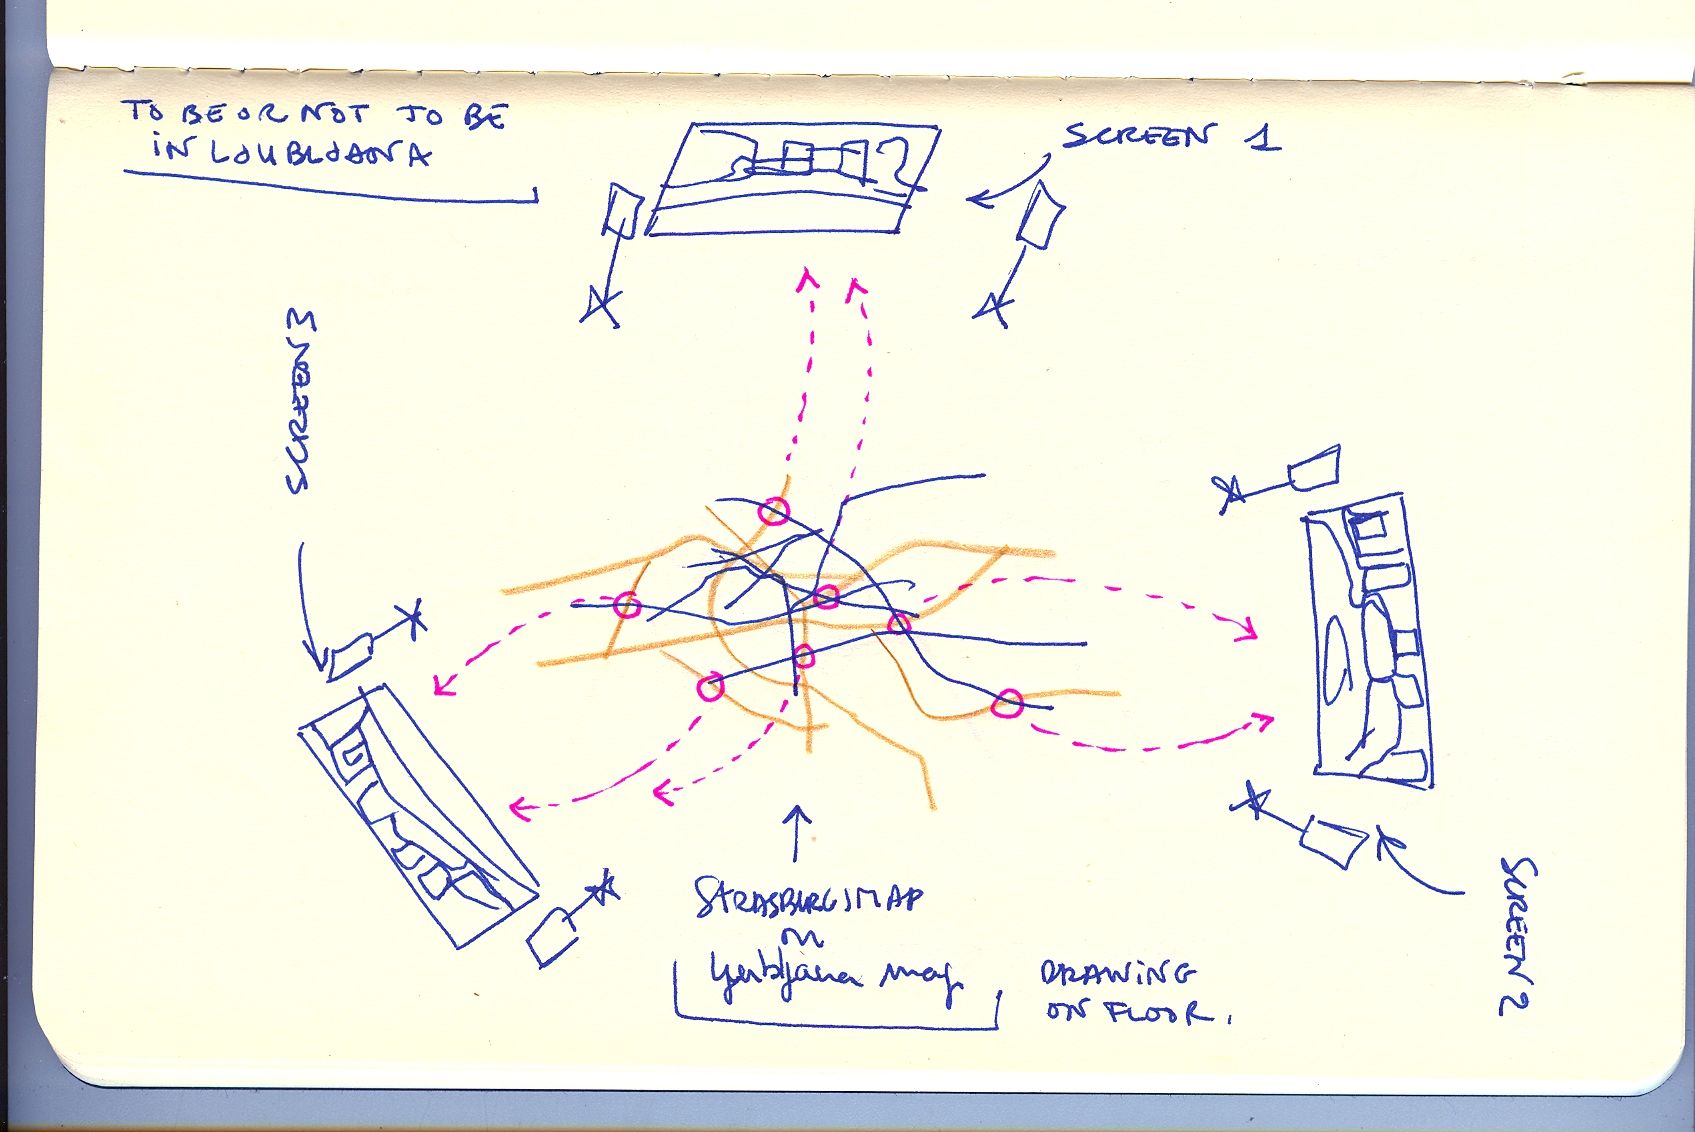 TO BE OR NOT TO BE
iN LOUBLJANA
SCREEN 1
SCREEN 3
SCREEN 2
STRASBURG MAP
on
Ljubljana map
DRAWiNG
ON FLOOR.